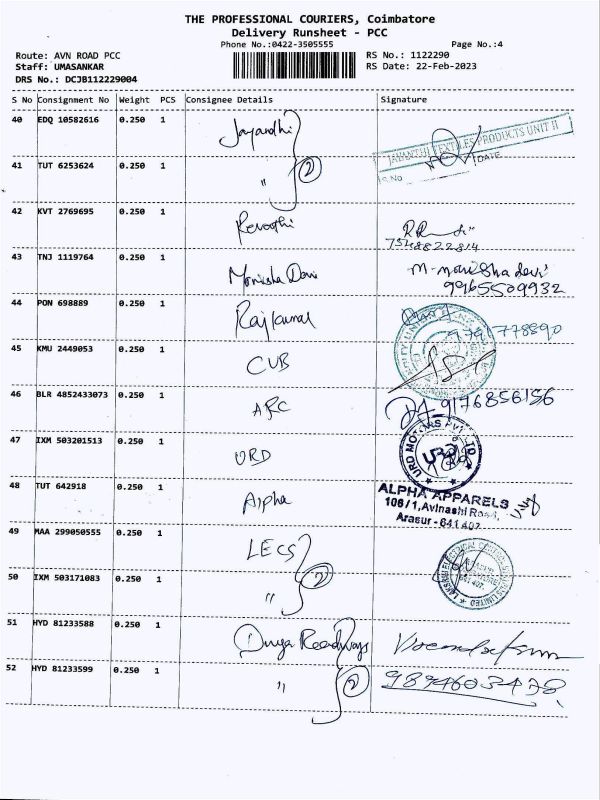 THE PROFESSIONAL COURIERS, Coimbatore
Delivery Runsheet - PCC
Phone No.:0422-3505555 Page No.:4
Route: AVN ROAD PCC RS No.: 1122290
Staff: UMASANKAR RS Date: 22-Feb-2023
DRS No.: DCJB112229004
S No Consignment No Weight PCS Consignee Details Signature
40 EDQ 10582616 0.250 1 Jayandhi JAYANTHI TEXTILES PRODUCTS UNIT II
S.No DATE
41 TUT 6253624 0.250 1 " 2
42 KVT 2769695 0.250 1 Revathi
7548822814
43 TNJ 1119764 0.250 1 Monisha Devi M-monisha devi
9965509932
44 PON 698889 0.250 1 Rajkumar 9791778890
45 KMU 2449053 0.250 1 CUB
46 BLR 4852433073 0.250 1 ARC 9176856156
47 IXM 503201513 0.250 1 URD URD MOTORS PVT LTD
48 TUT 642918 0.250 1 Alpha ALPHA APPARELS
106/1,Avinashi Road,
Arasur - 641 407.
49 MAA 299050555 0.250 1 LECS
50 IXM 503171083 0.250 1 " 2
51 HYD 81233588 0.250 1 Durga Roadways
52 HYD 81233599 0.250 1 " 2 9894603478